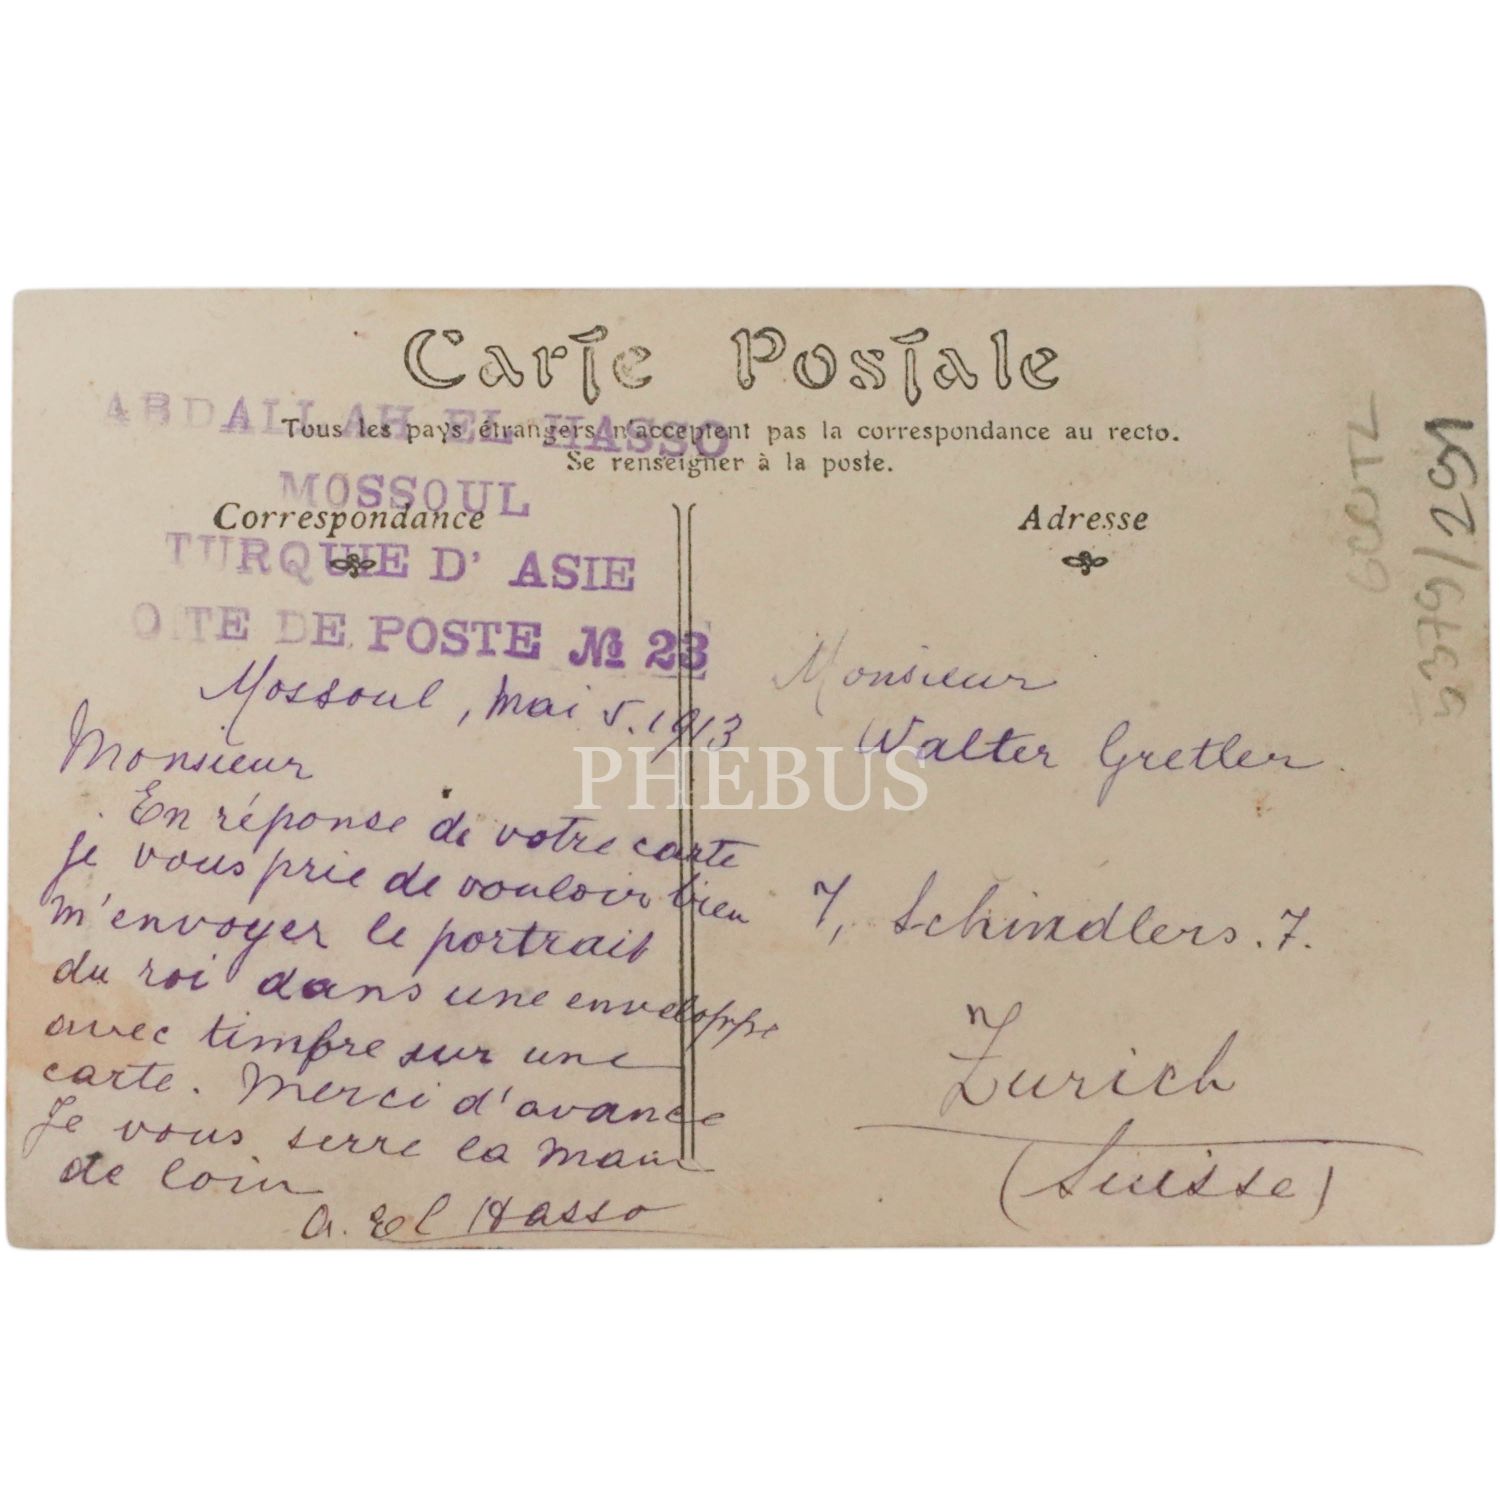 Carte Postale
Tous les pays étrangers n'acceptent pas la correspondance au recto.
Se renseigner à la poste.
Correspondance
Adresse
ABDALLAH EL HASSO
MOSSOUL
TURQUIE D' ASIE
OITE DE POSTE № 23
Mossoul, Mai 5. 1913
Monsieur
En réponse de votre carte
je vous prie de vouloir bien
m'envoyer le portrait
du roi dans une enveloppe
avec timbre sur une
carte. Merci d'avance
Je vous serre la main
de loin
A. El Hasso
Monsieur
Walter Gretler.
7, Schindlers. 7.
Zurich
(Suisse)
PHEBUS